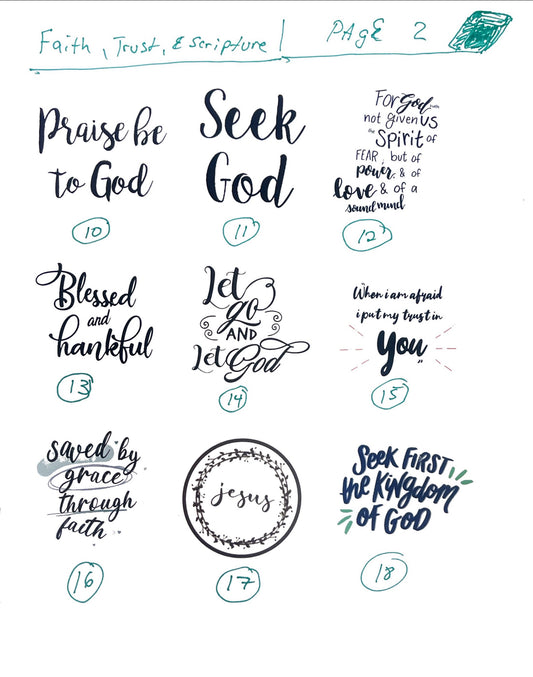 Faith, Trust, & Scripture | PAGE 2
Praise be
to God
10
Seek
God
11
For God has
not given us
the Spirit of
FEAR, but of
power, & of
love & of a
sound mind
12
Blessed
and
thankful
13
Let
go
AND
Let God
14
When i am afraid
i put my trust in
You
15
saved by
grace
through
faith
16
jesus
17
SEEK FIRST
the KINGDOM
OF GOD
18